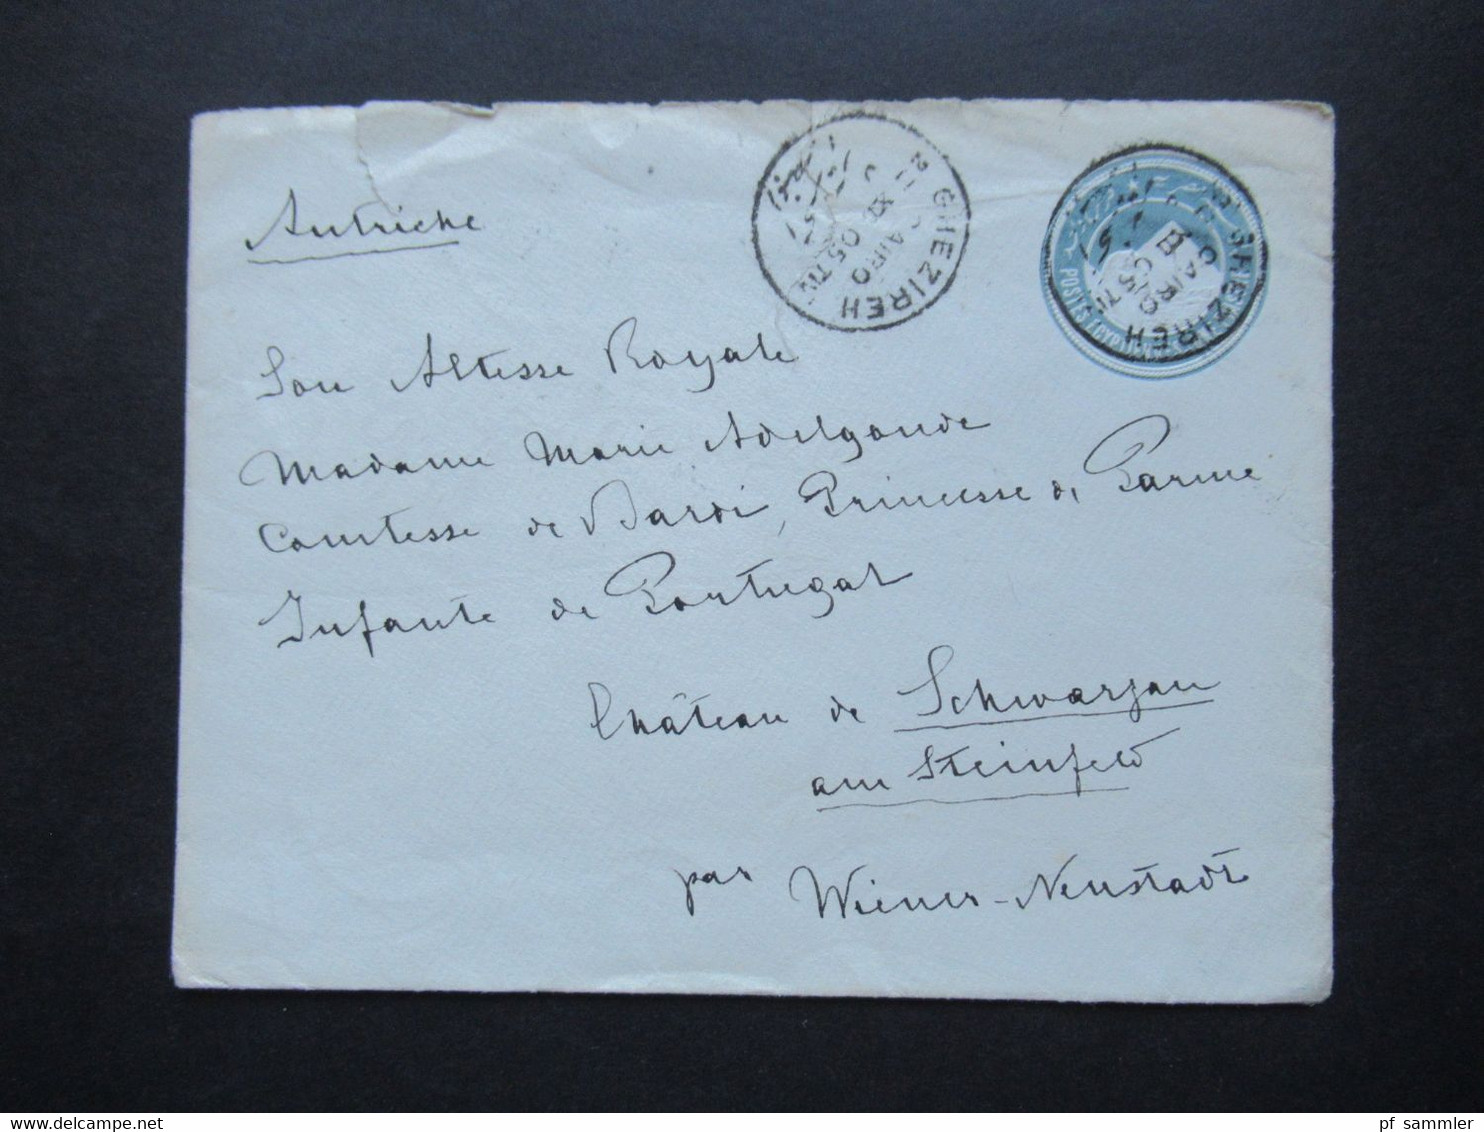 Autriche
GHEZIREH
CAIRO
GHEZIREH
CAIRO
POSTES EGYPTIENNES
Son Altesse Royale
Madame Marie Adelgonde
Comtesse de Bardi, Princesse de Parme
Infante de Portugal
Château de Schwarzau
am Steinfeld
par Wiener-Neustadt
pf_sammler